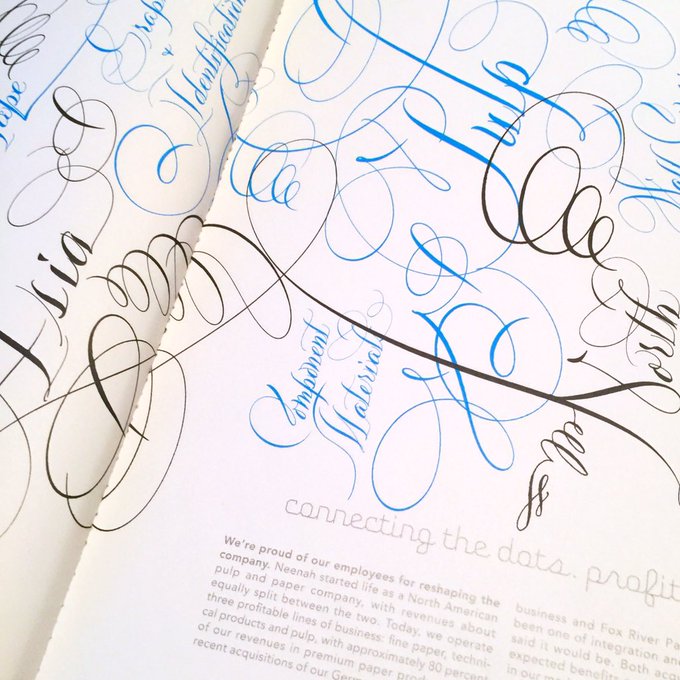 Tape
Grap
&
Identification
Asia
Component
Materials
sells
connecting the dots. profit
We're proud of our employees for reshaping the
company. Neenah started life as a North American
pulp and paper company, with revenues about
equally split between the two. Today, we operate
three profitable lines of business: fine paper, techni-
cal products and pulp, with approximately 80 percent
of our revenues in premium paper prod
recent acquisitions of our Germ
business and Fox River Pa
been one of integration an
said it would be. Both acq
expected benefits
in our m